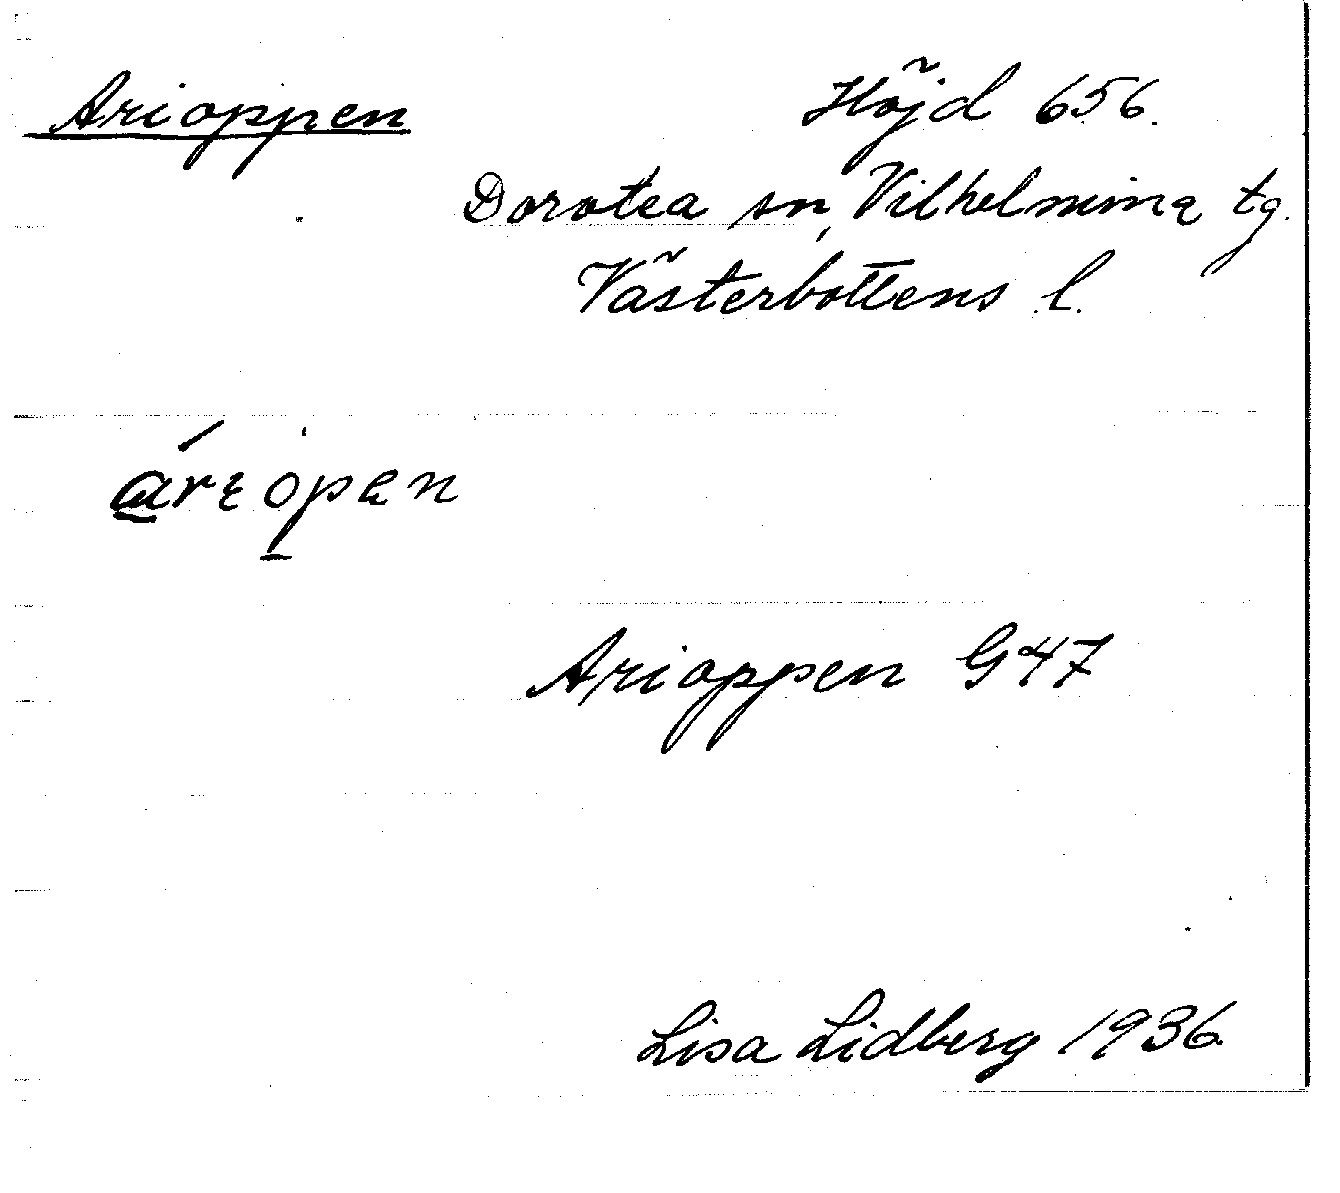 Arioppen
Höjd 656.
Dorotea sn, Vilhelmina tg.
Västerbottens l.
Arioppen G47
Lisa Lidberg 1936